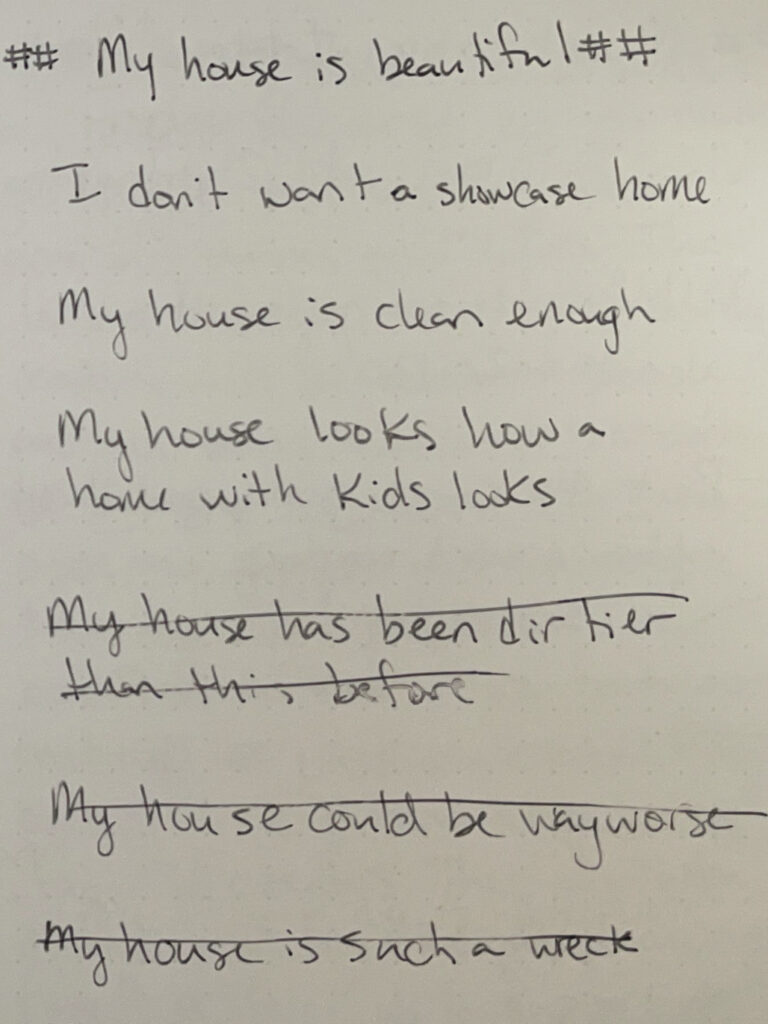 ## My house is beautiful ##
I don't want a showcase home
My house is clean enough
My house looks how a
home with kids looks
My house has been dirtier
than this before
My house could be way worse
My house is such a wreck